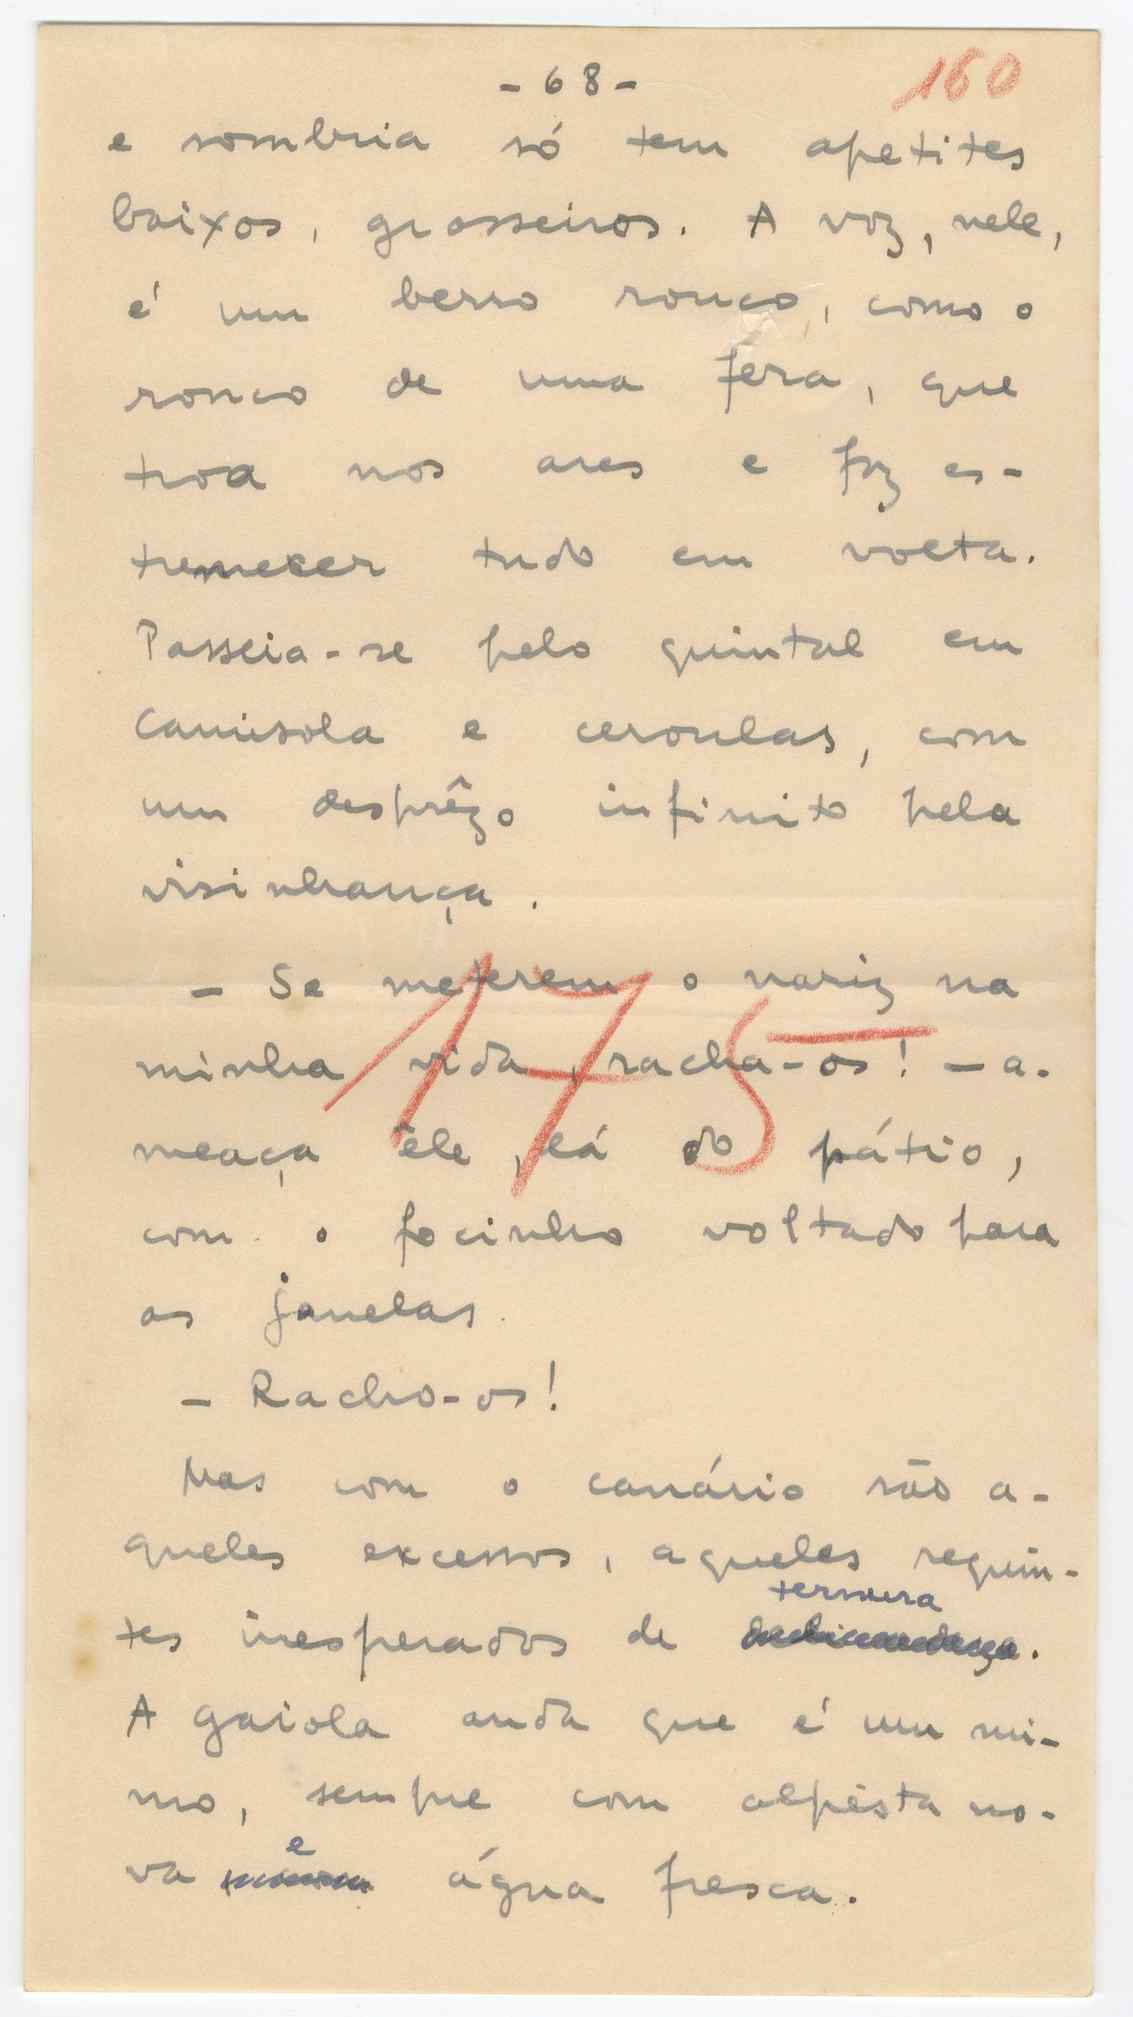 - 68 -
160
e sombria só tem apetites
baixos, grosseiros. A voz, nele,
é um berro rouco, como o
ronco de uma fera, que
troa nos ares e faz es-
tremecer tudo em volta.
Passeia-se pelo quintal em
camisola e ceroulas, com
um desprêzo infinito pela
visinhança.
- Se meterem o nariz na
175
minha vida, racha-os! - a-
meaça êle, lá do pátio,
com o focinho voltado para
as janelas.
- Racho-os!
Mas com o canário são a-
queles excessos, aqueles requin-
ternura
tes inesperados de .
A gaiola anda que é um mi-
mo, sempre com alpista no-
e
va água fresca.